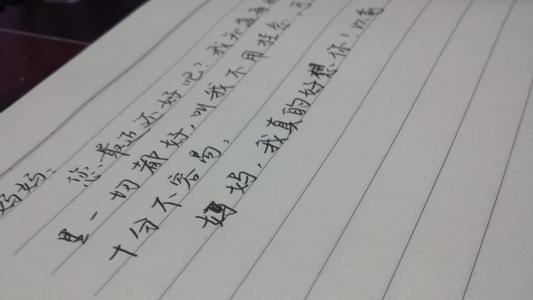 妈妈:
您最近还好吧?我知
里一切都好,叫我不用挂念,
十分不容易,
妈妈,我真的好想你!